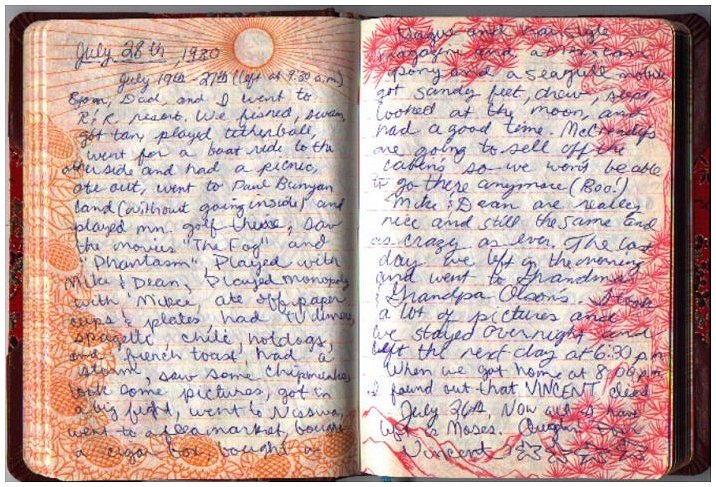 July 28th, 1980
July 19th - 27th (left at 9:30 a.m)
Mom, Dad and I went to
R & R resort. We fished, swam,
got tan, played tetherball,
went for a boat ride to the
other side and had a picnic,
ate out, went to Paul Bunyan
land (without going inside) and
played mn. golf twice, saw
the movies "The Fog" and
"Phantasm". Played with
Mike & Dean, Played monopoly
with Mike, ate off paper
cups & plates had TV dinners,
spagetti, chili, hotdogs,
and french toast, had a
storm, saw some chipmunks,
took some pictures, got in
a big fight, went to Nisswa,
went to a flea market, bought
a cigar box, bought a
magazine and a American
pony and a seagull mobile
got sandy feet, drew, slept,
looked at the moon, and
had a good time.
are going to sell off the
cabins so we won't be able
to go there anymore (Boo!)
Mike & Dean are really
nice and still the same and
as crazy as ever. The last
day we left in the morning
and went to Grandma
& Grandpa Olsons. I took
a lot of pictures and
we stayed overnight and
left the next day at 6:30 p.m.
When we got home at 8:00 p.m
I found out that VINCENT died
July 26th. Now all I have
left is Moses.
Vincent